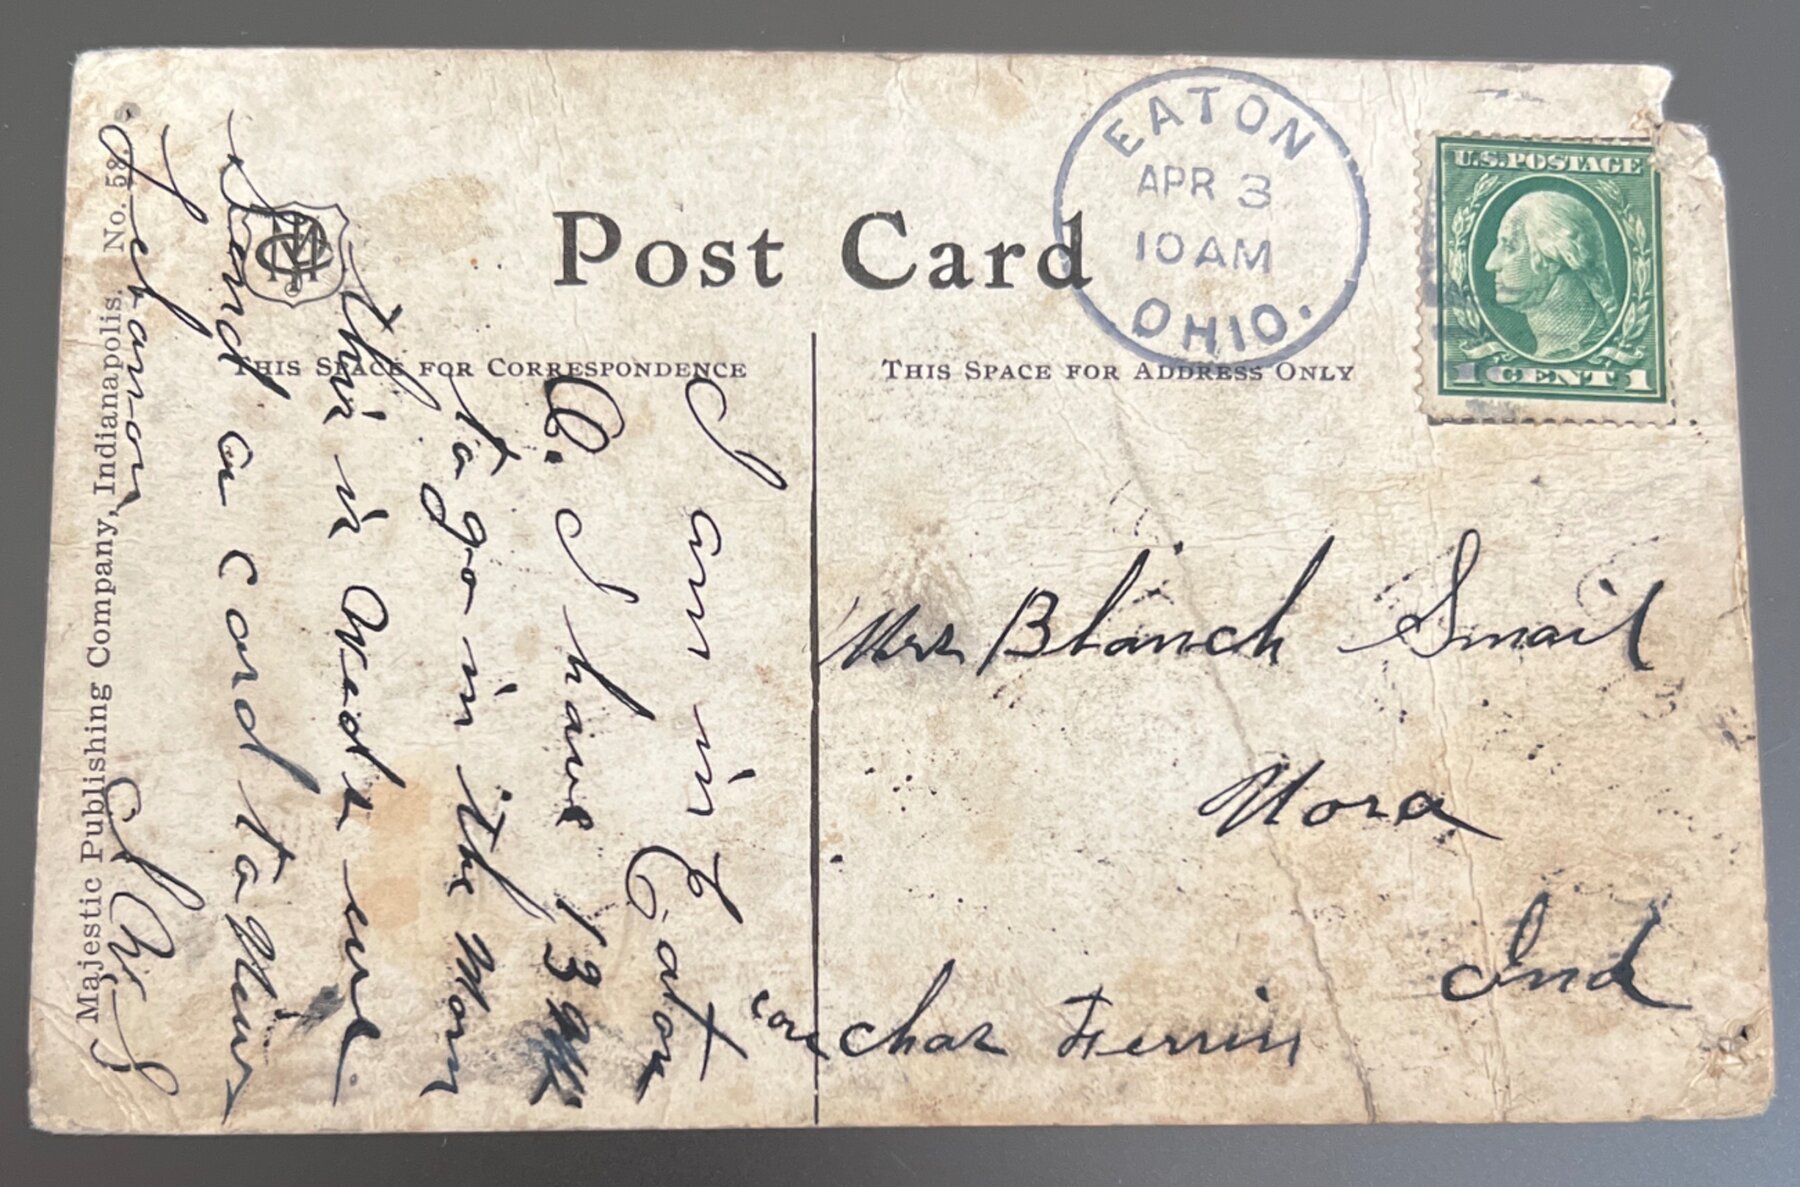 Post Card
THIS SPACE FOR CORRESPONDENCE
THIS SPACE FOR ADDRESS ONLY
EATON
APR 3
10 AM
OHIO.
U.S. POSTAGE
1 CENT 1
Majestic Publishing Company, Indianapolis. No. 58
I am in Eaton
O. I have 13
to go in the
This is
Send a card to
Lebanon
Mrs Blanch Smail
Nora
Ind
Care Chas Ferrin